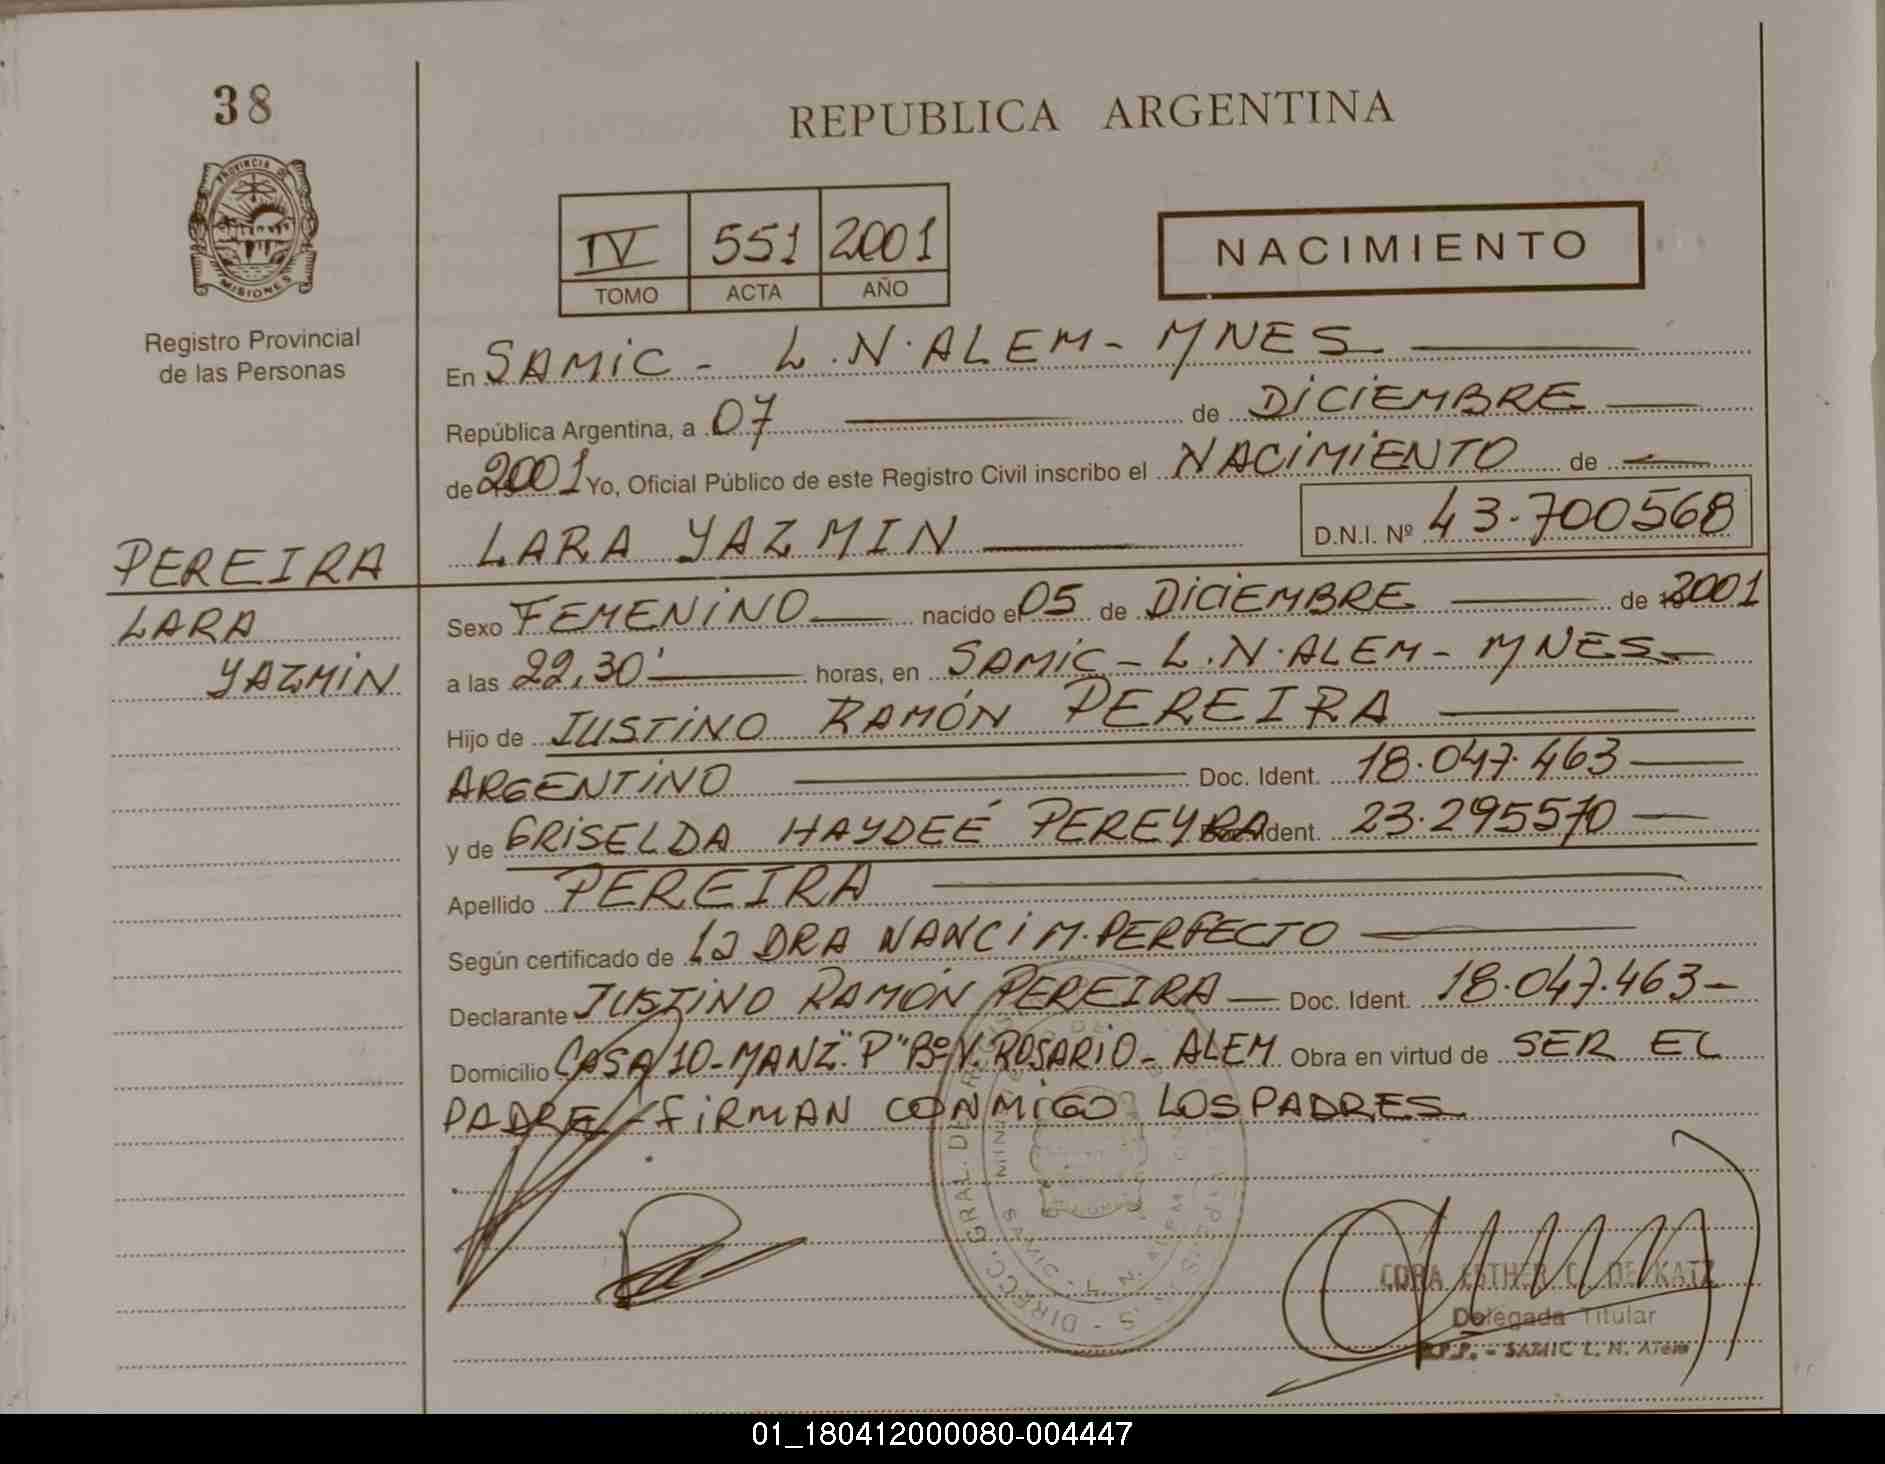 38
REPUBLICA ARGENTINA
PROVINCIA DE
MISIONES
Registro Provincial
de las Personas
IV 551 2001
TOMO ACTA AÑO
NACIMIENTO
En SAMIC - L.N. ALEM - MNES
República Argentina, a 07 de DICIEMBRE
de 2001 Yo, Oficial Público de este Registro Civil inscribo el NACIMIENTO de
LARA YAZMIN D.N.I. Nº 43.700568
PEREIRA
LARA
YAZMIN
Sexo FEMENINO nacido el 05 de DICIEMBRE de 2001
a las 22,30' horas, en SAMIC - L.N. ALEM - MNES
Hijo de JUSTINO RAMÓN PEREIRA
ARGENTINO Doc. Ident. 18.047.463
y de GRISELDA HAYDEÉ PEREYRA Doc. Ident. 23.295570
Apellido PEREIRA
Según certificado de La DRA NANCI M. PERFECTO
Declarante JUSTINO RAMÓN PEREIRA Doc. Ident. 18.047.463
Domicilio CASA 10 - MANZ. "P" Bº V. ROSARIO - ALEM Obra en virtud de SER EL
PADRE - FIRMAN CONMIGO LOS PADRES
CORA ESTHER C. DE KATZ
Delegada Titular
R.P.P. - SAMIC L. N. Alem
01_180412000080-004447